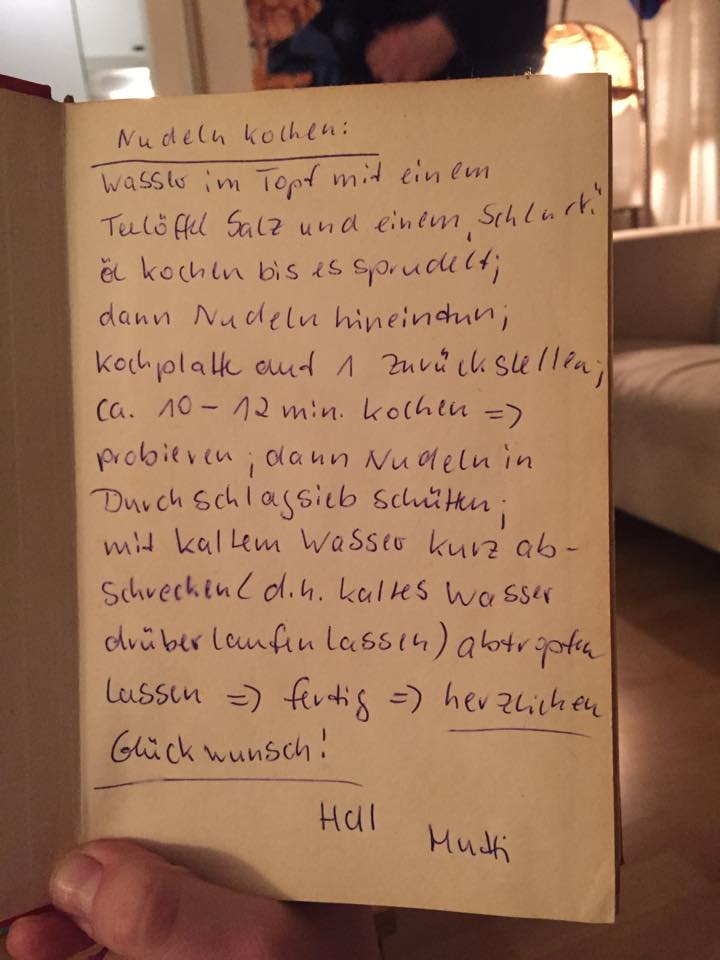 Nudeln kochen:
Wasser im Topf mit einem
Teelöffel Salz und einem „Schluck“
Öl kochen bis es sprudelt;
dann Nudeln hineintun;
Kochplatte auf 1 zurückstellen;
ca. 10-12 min. kochen =>
probieren; dann Nudeln in
Durchschlagsieb schütten;
mit kaltem Wasser kurz ab-
schrecken (d.h. kaltes Wasser
drüber laufen lassen) abtropfen
lassen => fertig => herzlichen
Glückwunsch!
Mutti